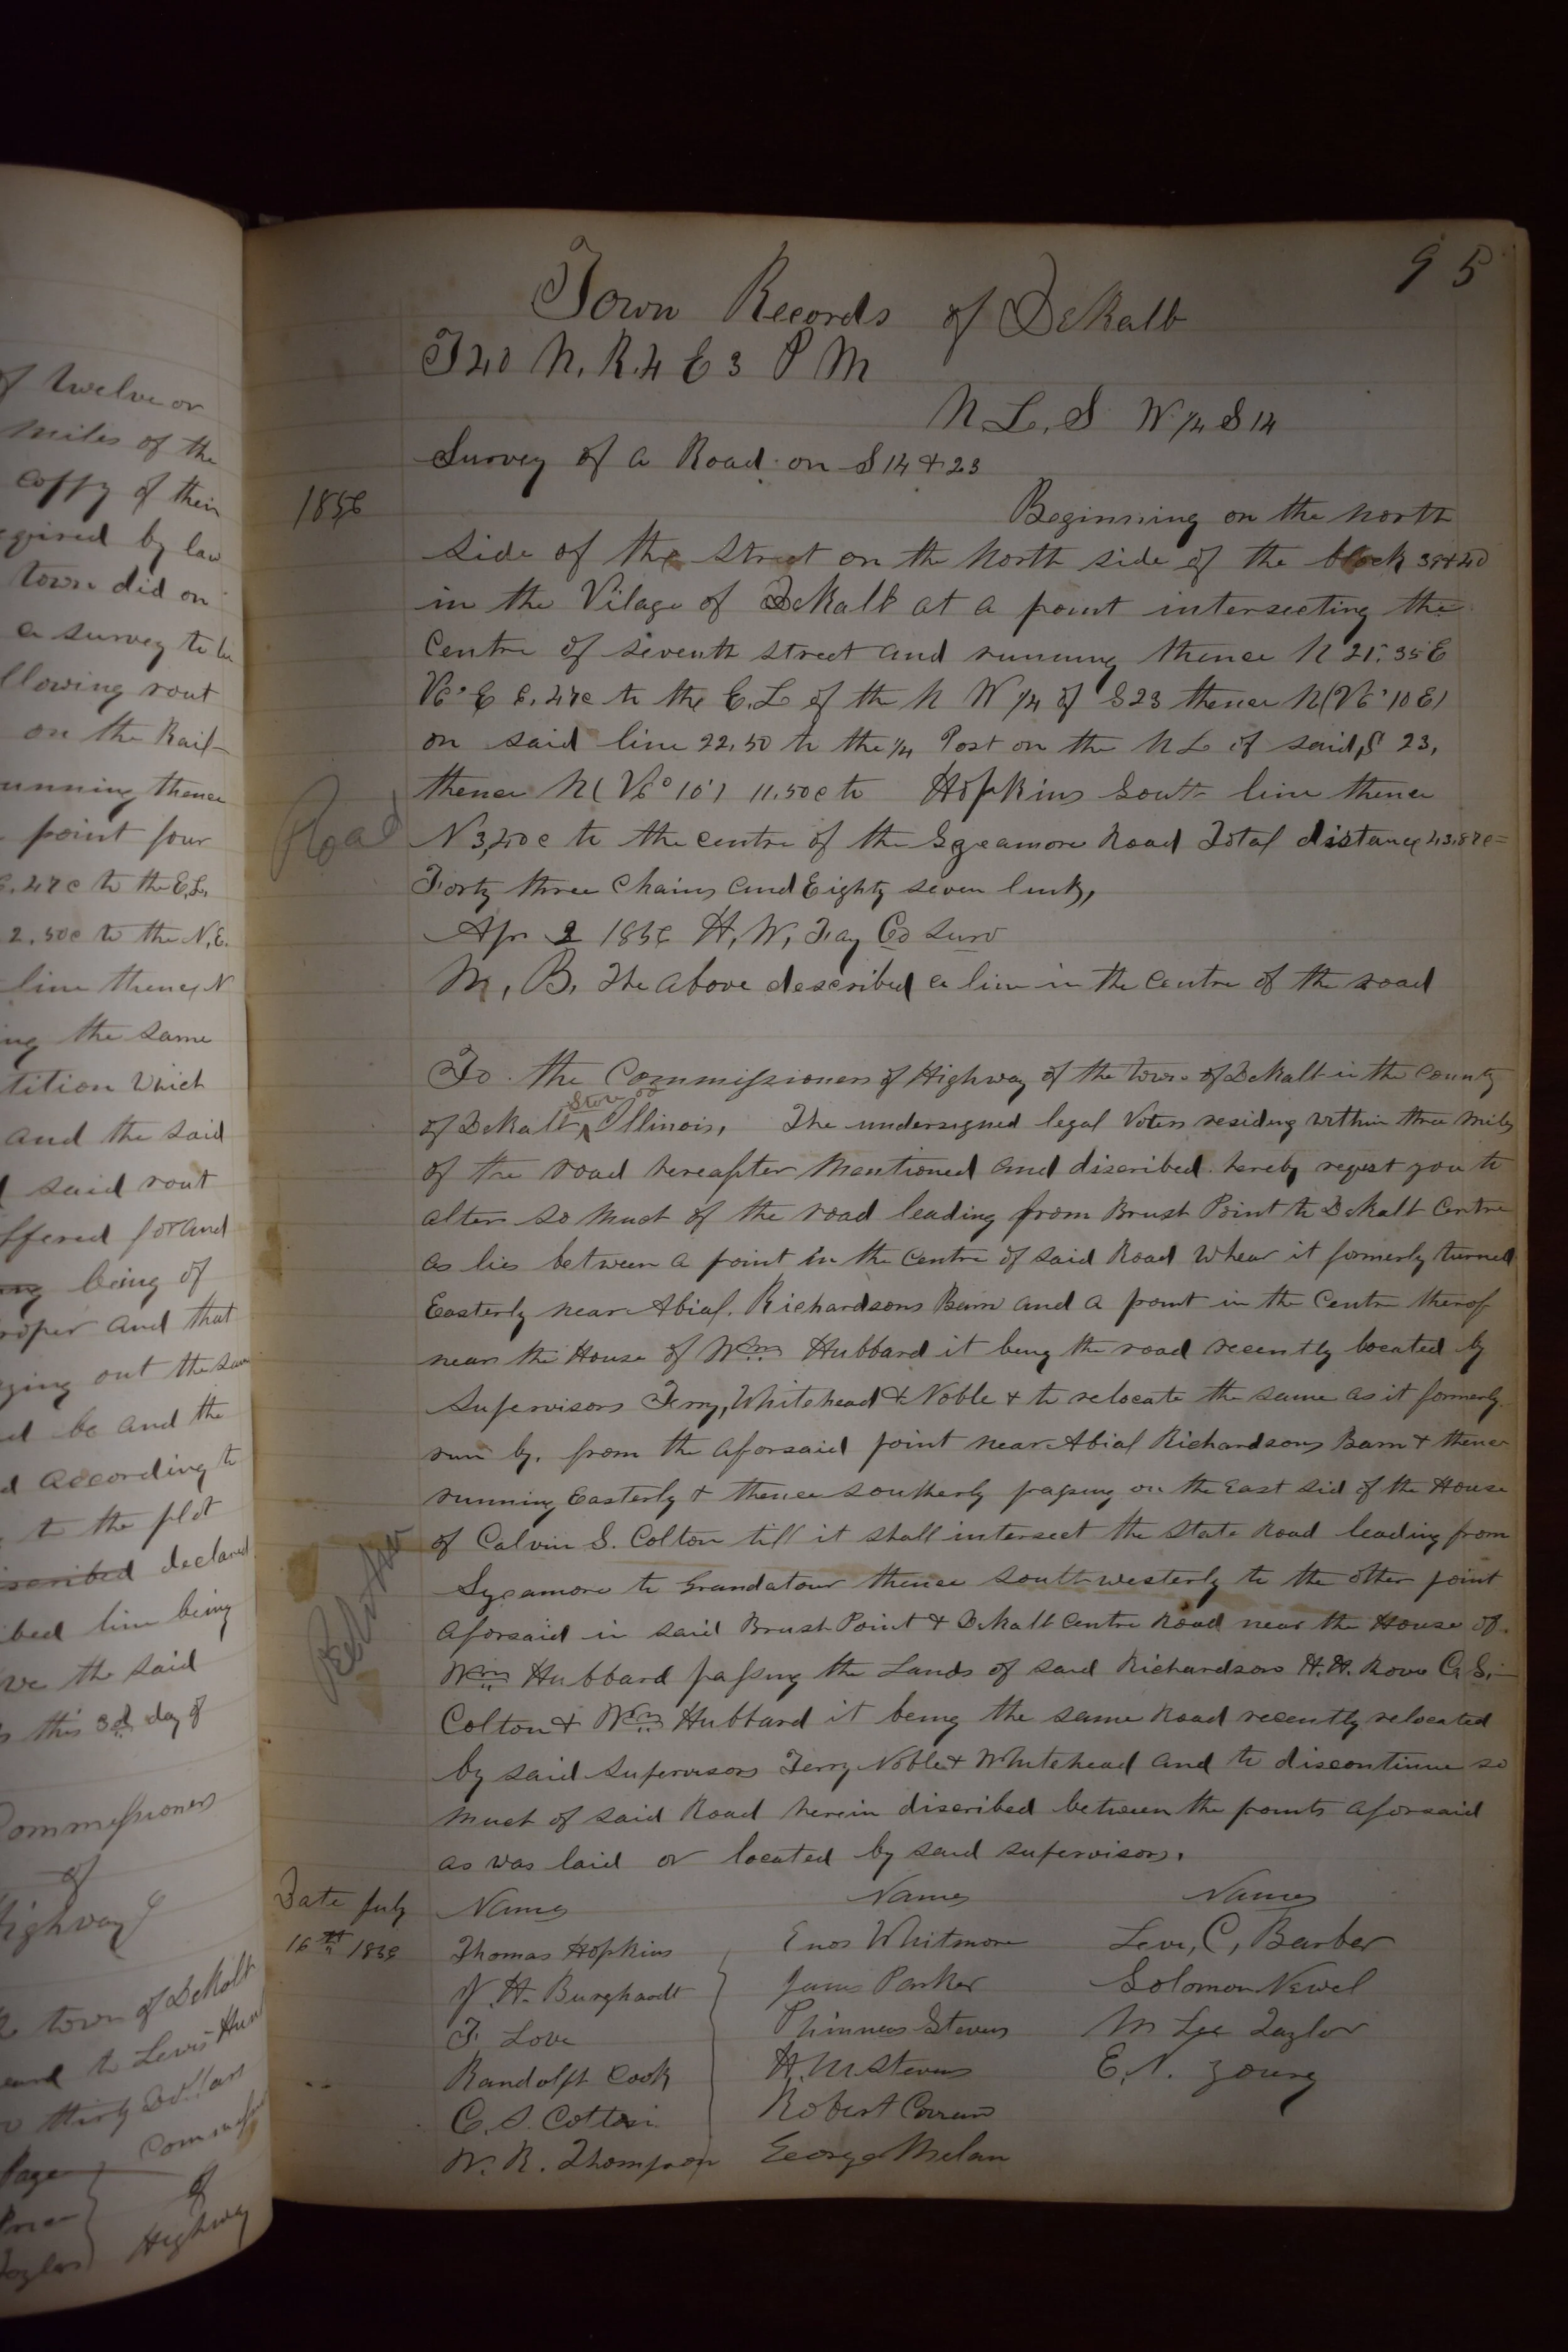 of twelve or
miles of the
coppy of their
by law
town did on
a survey to be
rout
on the Rail-
thence
point four
.47c to the E.L.
2,50c to the N.E.
line thence N
the same
which
and the said
said rout
for and
being of
and that
out the same
be and the
according to
to the plot
described declared
line being
the said
this 3d day of
Commissioners
of
Highway
town of DeKalb
to Lewis
thirty Dollars
of
Highway
95
Town Records of DeKalb
T40 N. R.4 E 3 P M
N L, S W 1/4 S 14
Survey of a Road on S 14 + 23
1856
Beginning on the north
side of the street on the north side of the block 39+40
in the Vilage of DeKalb at a point intersecting the
Centre of seventh street and running thence N 21° 35 E
V6° E 6.47c to the E.L of the N W 1/4 of S23 thence N (V6° 10 E)
on said line 22,50 to the 1/4 Post on the N L of said S 23,
thence N (V6° 10') 11.50c to Hopkins South line thence
Road
N 3,40c to the centre of the Sycamore Road Total distance 43.87c=
Forty three Chains and Eighty seven links,
Apr 2 1856 H, W, Fay Co Surv
N, B, The above described a line in the centre of the road
To the Commissioners of Highway of the town of DeKalb in the County
of DeKalb State of Illinois, The undersigned legal Voters residing within three miles
of the road hereafter mentioned and discribed hereby request you to
alter so much of the road leading from Brush Point to DeKalb Centre
as lies between a point in the centre of said Road whear it formerly turned
Easterly near Abial Richardsons Barn and a point in the Centre therof
near the House of Wm Hubbard it being the road recently located by
Supervisors Terry, Whitehead & Noble & to relocate the same as it formerly
run by, from the aforsaid point near Abial Richardsons Barn & thence
running Easterly & thence southerly passing on the East sid of the House
of Calvin S. Colton till it shall intersect the State Road leading from
Sycamore to Grandatour thence southwesterly to the other point
aforsaid in said Brush Point & DeKalb Centre Road near the House of
Wm Hubbard passing the Lands of said Richardson H. H. Rowe C. S.
Colton & Wm Hubbard it being the same Road recently relocated
by said Supervisors Terry Noble & Whitehead and to discontinue so
much of said Road herein discribed between the points aforsaid
as was laid or located by said supervisors.
Date July
16th 1856
Names Names Names
Thomas Hopkins Enos Whitmore Levi, C, Barber
J. H. Burghardt James Parker Solomon Newel
T, Love Phinneas Stevens M Lee Taylor
Randolph Cook H. M Stevens E. N. Young
C. S. Colton Robert
W. R. Thompson George